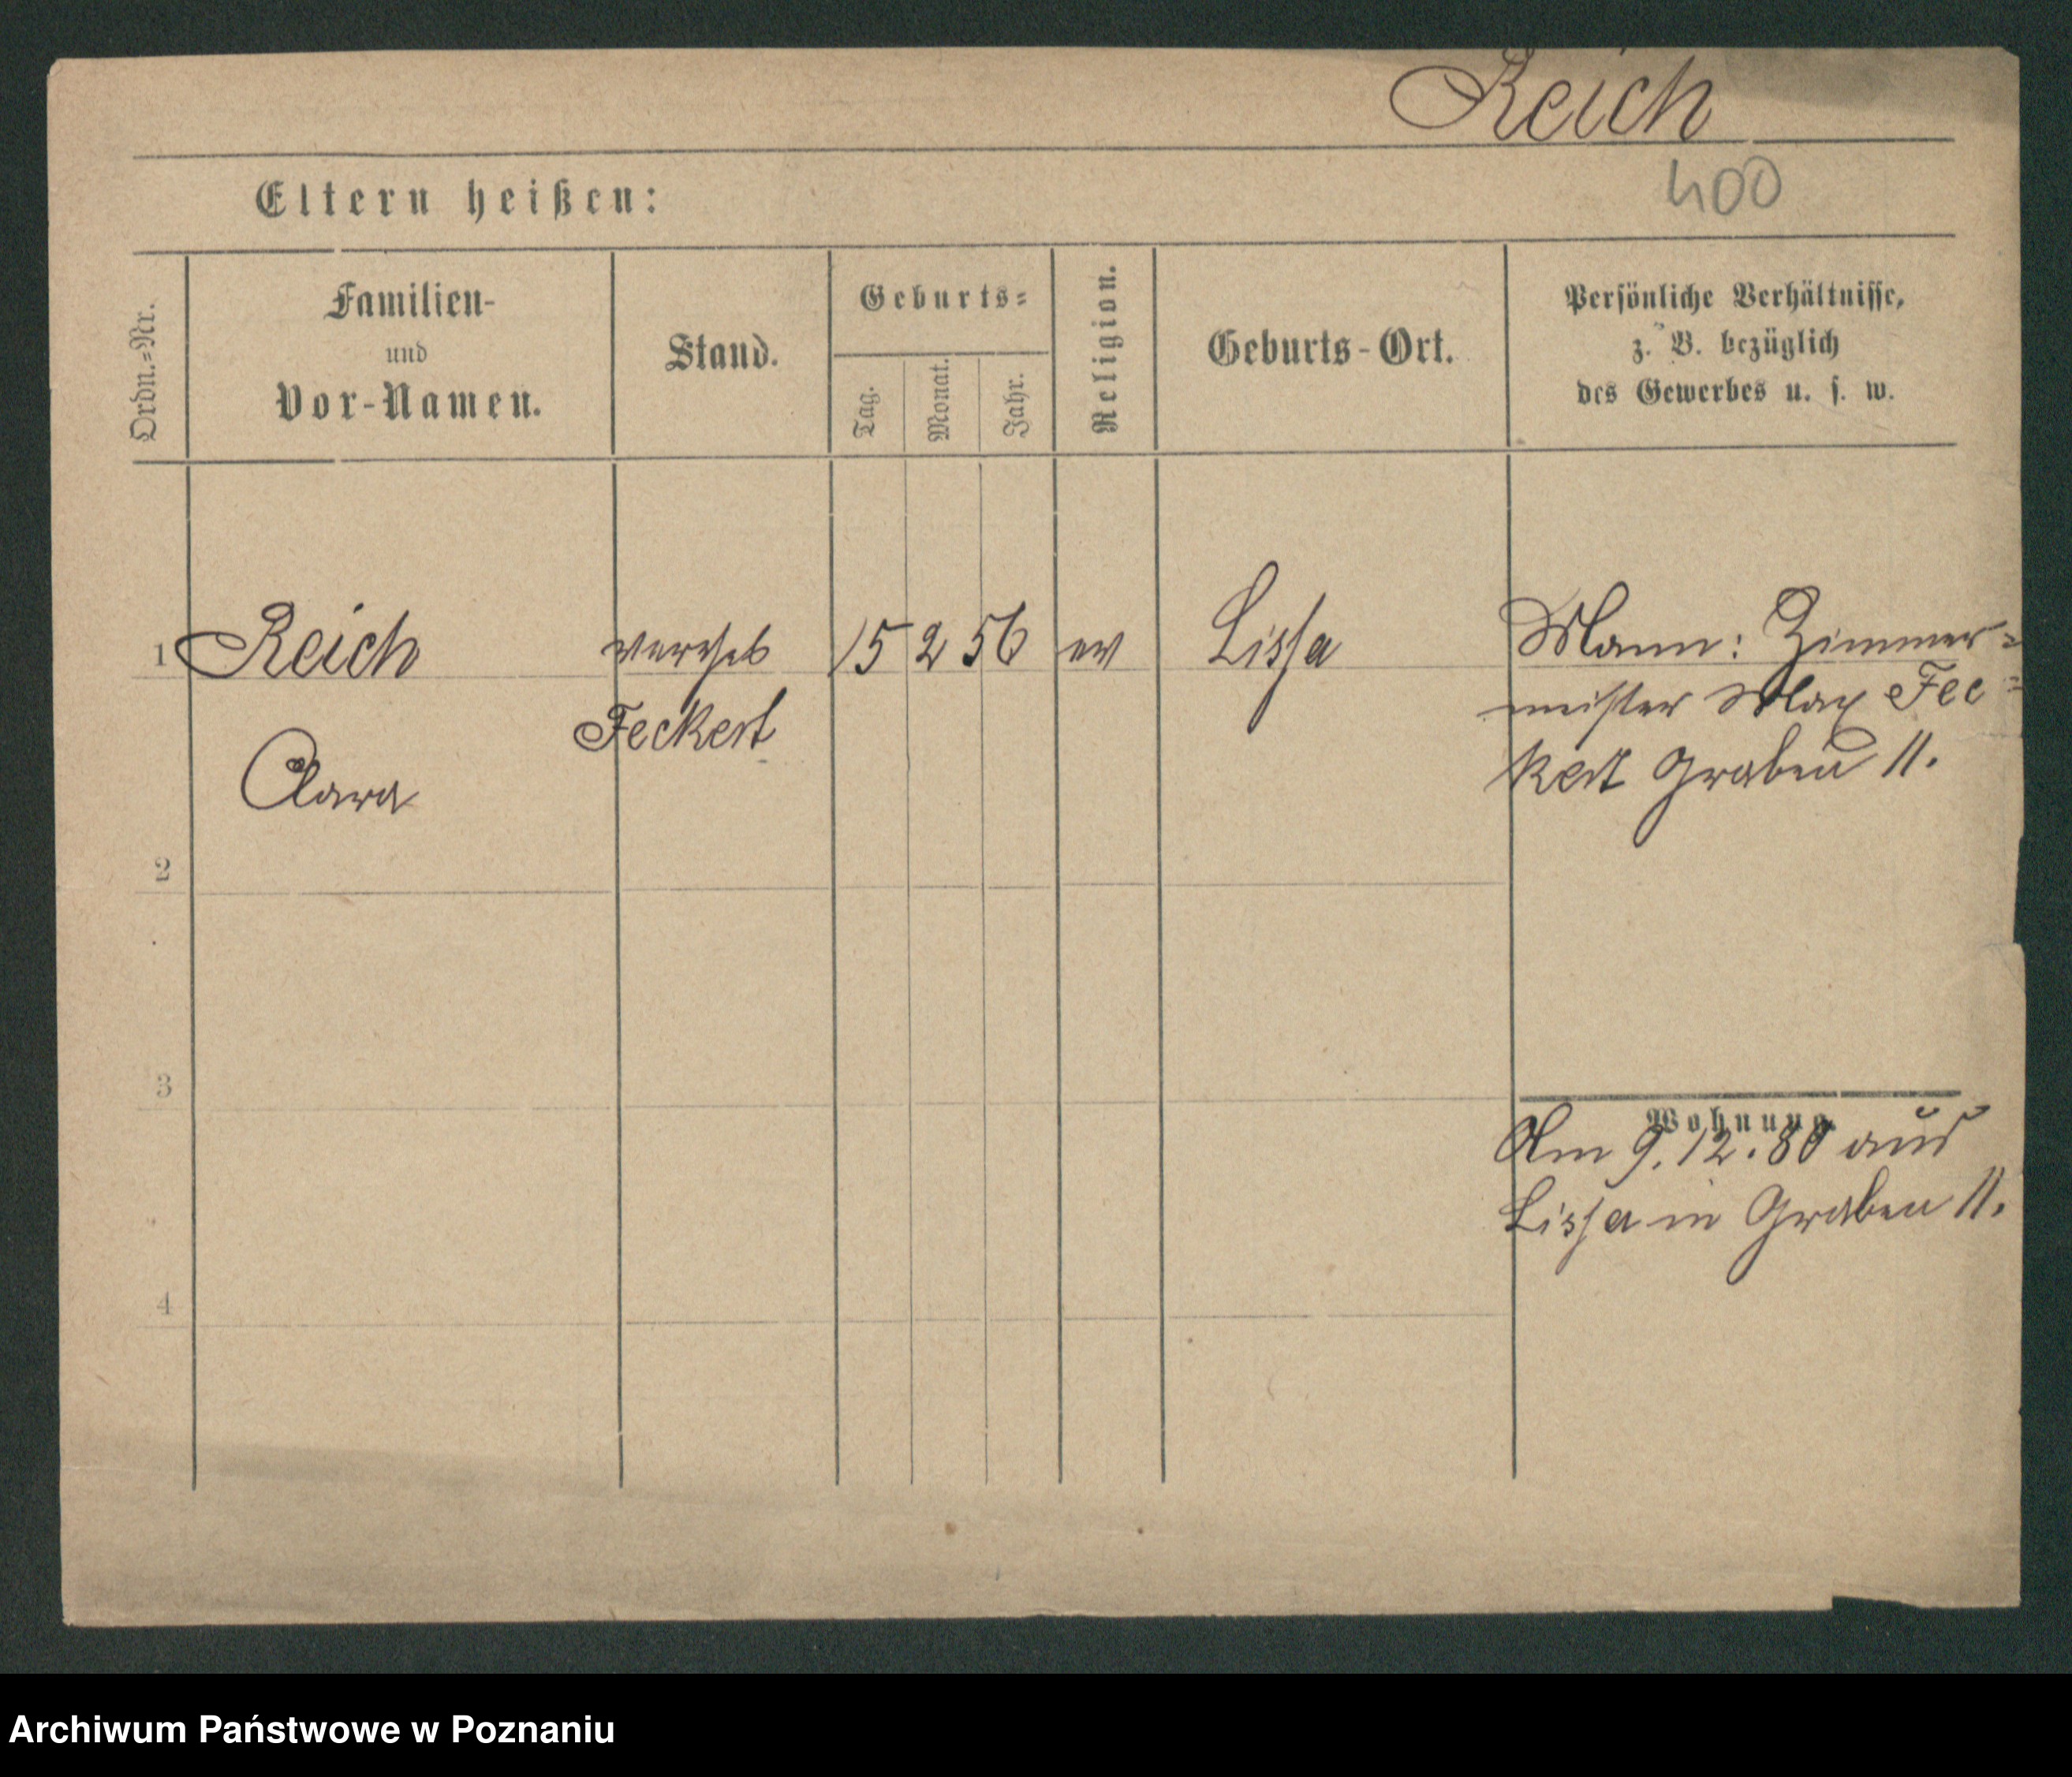 Reich
Eltern heißen:
400
Ordn.=Nr.
Familien-
und
Vor-Namen.
Stand.
Geburts=
Tag.
Monat.
Jahr.
Religion.
Geburts-Ort.
Persönliche Verhältnisse,
z. B. bezüglich
des Gewerbes u. s. w.
1 Reich 15 2 56 ev Lissa Mann: Zimmer=
Feckert meister Max Fec=
Clara kert Graben 11.
2
3
Wohnung.
Am 9.12.80 aus
Lissa in Graben 11.
4
Archiwum Państwowe w Poznaniu